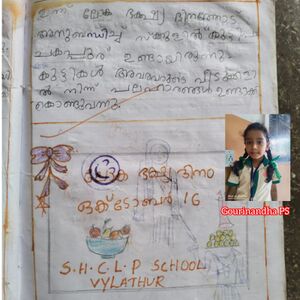 ഇന്ന് ലോക ഭക്ഷ്യ ദിനത്തോട്
അനുബന്ധിച്ച് സ്കൂളിൽ
ഉണ്ടായിരുന്നു
കുട്ടികൾ അവരവരുടെ വീടുകളിൽ
നിന്ന് പലഹാരങ്ങൾ ഉണ്ടാക്കി
കൊണ്ടുവന്നു.
ലോക ഭക്ഷ്യ ദിനം
ഒക്ടോബർ 16
S.H.C.L.P SCHOOL
VYLATHUR
Gourinandha.PS